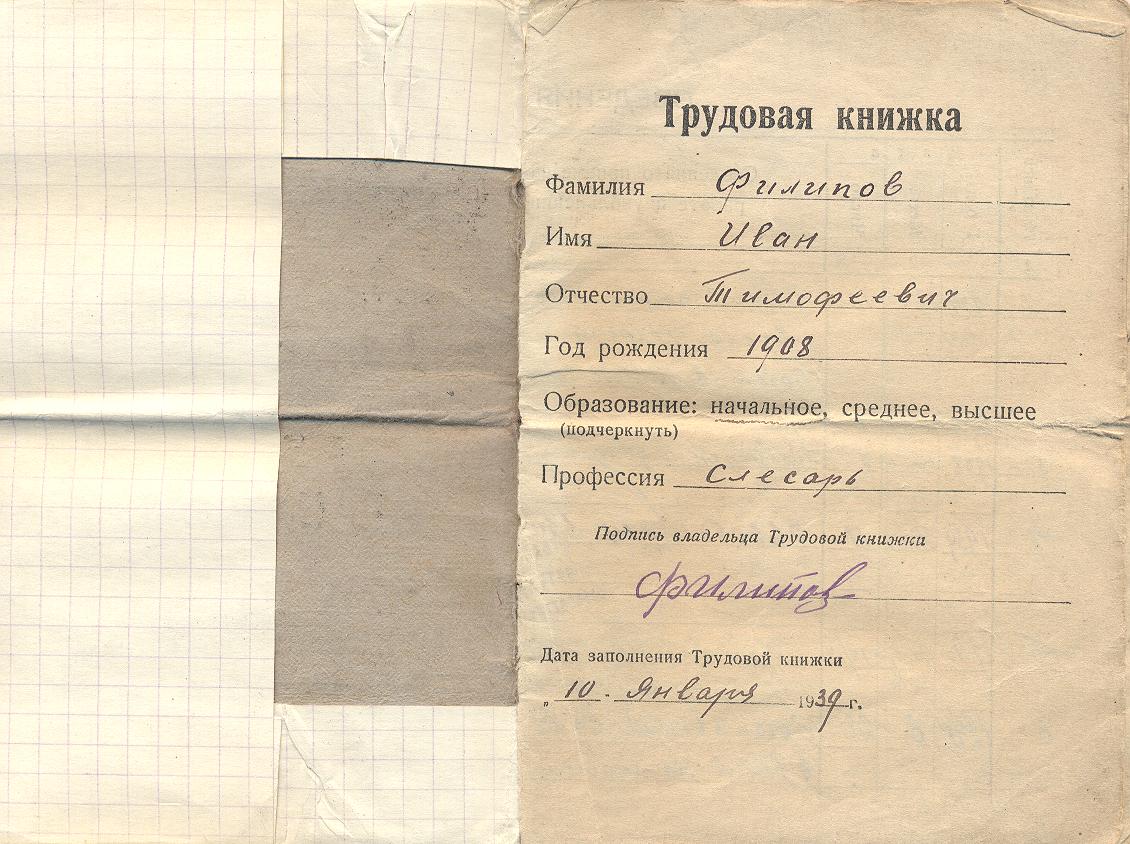 Трудовая книжка
Фамилия Филипов
Имя Иван
Отчество Тимофеевич
Год рождения 1908
Образование: начальное, среднее, высшее
(подчеркнуть)
Профессия Слесарь
Подпись владельца Трудовой книжки
Филипов
Дата заполнения Трудовой книжки
„ 10 . Января 1939 г.